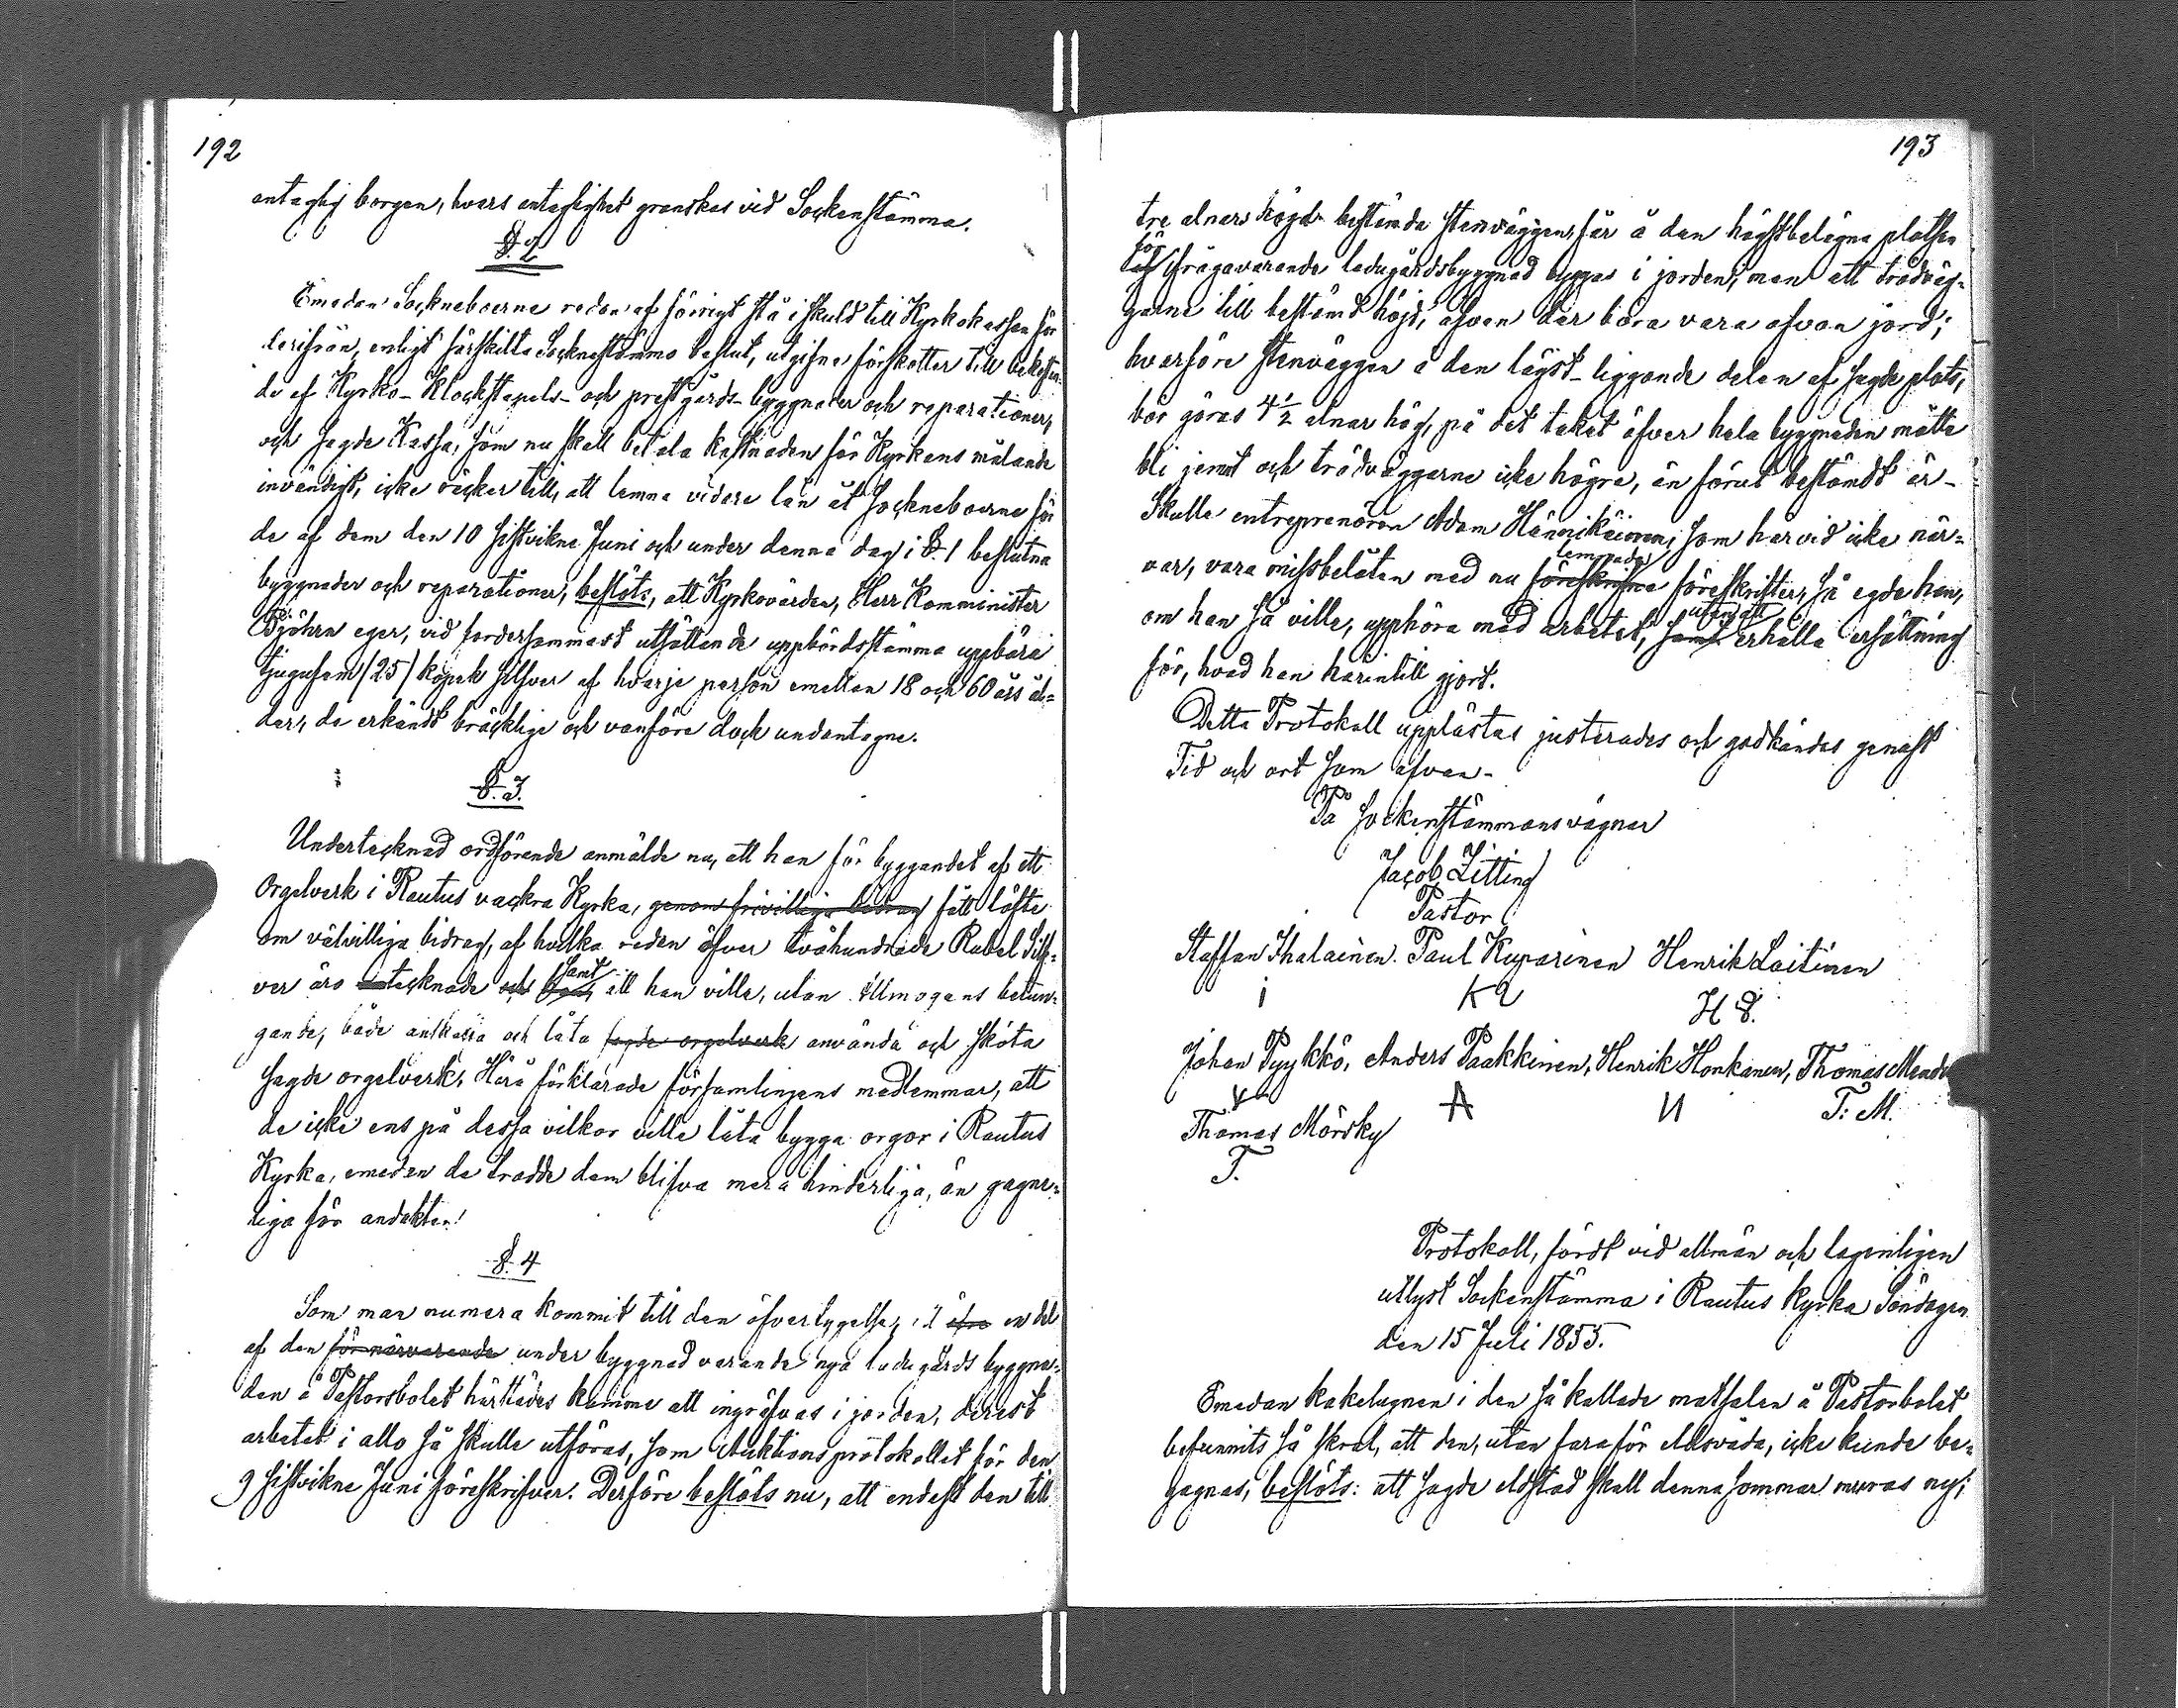 192
antaglig borgen, hvars antaglighet granskas vid Sockenstämma.
§. 2
Emedan Sockneboerne redan af förrigt stå i skuld till Kyrkokassan för
derifrån, enligt särskilta Socknestämmo beslut, utgifne förskotter till bekostan-
de af Kyrko- Klockstapels- och prestgårds-byggnader och reparationer,
och sagde Kassa, som nu skall betala kostnaden för Kyrkans målande
invändigt, icke räcker till, att lemna vidare lån åt Sockneboerne för
de af dem den 10 sistvikne Juni och under denna dag i §. 1 beslutna
byggnader och reparationer, beslöts, att Kyrkovärden, Herr Komminister
Björkn eger, vid fordersammast utsättande uppbördsstämma uppbära
tjugufem (25) kopek silfver af hvarje person emellan 18 och 60 års ål-
der, de erkändt bräcklige och vanföre dock undantagne.
§. 3.
Undertecknad ordförande anmälde nu, att han för byggandet af ett
Orgelverk i Rautus vackra Kyrka, genom frivilliga bidrag fått löfte
om välvilliga bidrag, af hvilka redan öfver tvåhundrade Rubel Silf-
ver äro antecknade och samt att han ville, utan Allmogens betun-
gande, både anskaffa och låta sagde orgelverk använda och sköta
sagde orgelverk. Härå förklarade församlingens medlemmar, att
de icke ens på dessa vilkor ville låta bygga orgor i Rautus
Kyrka, emedan de trodde dem blifva mera hinderliga, än gagne-
liga för andakten!
§. 4
Som man numera kommit till den öfvertygelse, att en del
af den för närvarande under byggnad varande nya ladugårds byggna-
den å Pastorsbolet härstädes komme att ingräfvas i jorden, derest
arbetet i allo så skulle utföras, som Auktions protokollet för den
9 sistvikne Juni föreskrifver. Derföre beslöts nu, att endast den till
193
tre alnars högd bestämda stenväggen, får å den högstbelägna platsen
för ifrågavarande ladugårdsbyggnad byggas i jorden, men att trädväg-
garne till bestämd höjd, äfven der böra vara ofvan jord;
hvarföre stenväggen å den lägst-liggande delen af sagde plats,
bör göras 4½ alnar hög, på det taket öfver hela byggnaden måtte
bli jemnt och trädväggarne icke högre, än förut bestämdt är-
Skulle entreprenören Adam Hännikäinen, som härvid icke när-
lemnade
var, vara missbelåten med nu föreskrifna föreskrifter, så egde han,
utan att
om han så ville, upphöra med arbetet, samt erhålla ersättning
för, hvad han härintill gjort.
Detta Protokoll upplästes justerades och godkändes genast
Tid och ort som ofvan-
På Sockenstämmans vägnar
Jacob Litting
Pastor
Staffan Ihalainen. Paul Kuparinen Henrik Laitinen
Johan Pyykkö, Anders Paakkinen, Henrik Honkanen, Thomas
A H T: M.
Thomas Mörsky
T.
Protokoll, fördt vid allmän och lagenligen
utlyst Sockenstämma i Rautus Kyrka Söndagen
den 15 Juli 1855.
Emedan kakelugnen i den så kallade mathsalen å Pastorbolet
befunnits så skral, att den, utan fara för eldsvåda, icke kunde be-
gagnas, beslöts: att sagde eldstad skall denna sommar muras ny;